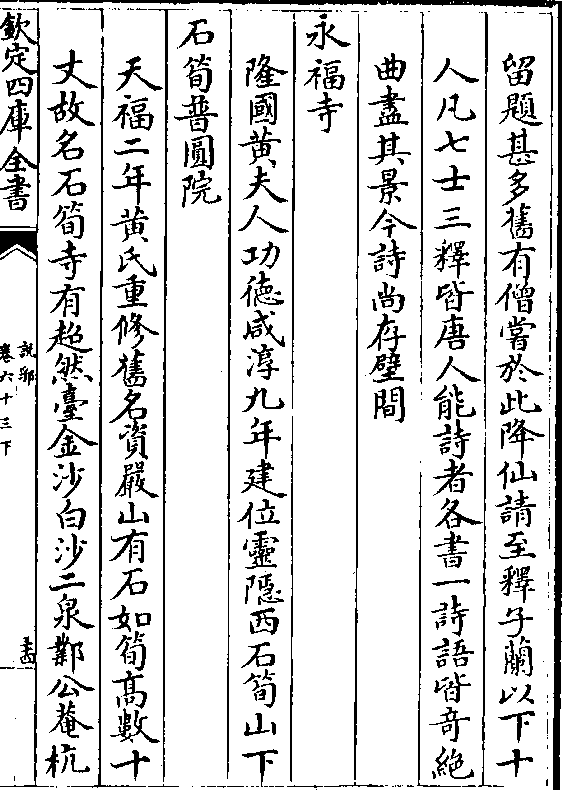 留題甚多舊有僧嘗於此降仙請至釋子蘭以下十
人凡七士三釋皆唐人能詩者各書一詩語皆奇絶
曲盡其景今詩尚存壁間
永福寺
隆國黄夫人功德咸淳九年建位靈隱西石筍山下
石筍普圓院
天福二年黄氏重修舊名資嚴山有石如筍髙數十
丈故名石筍寺有超然臺金沙白沙二泉鄴公菴杭
欽定四庫全書
說郛
卷六十三下